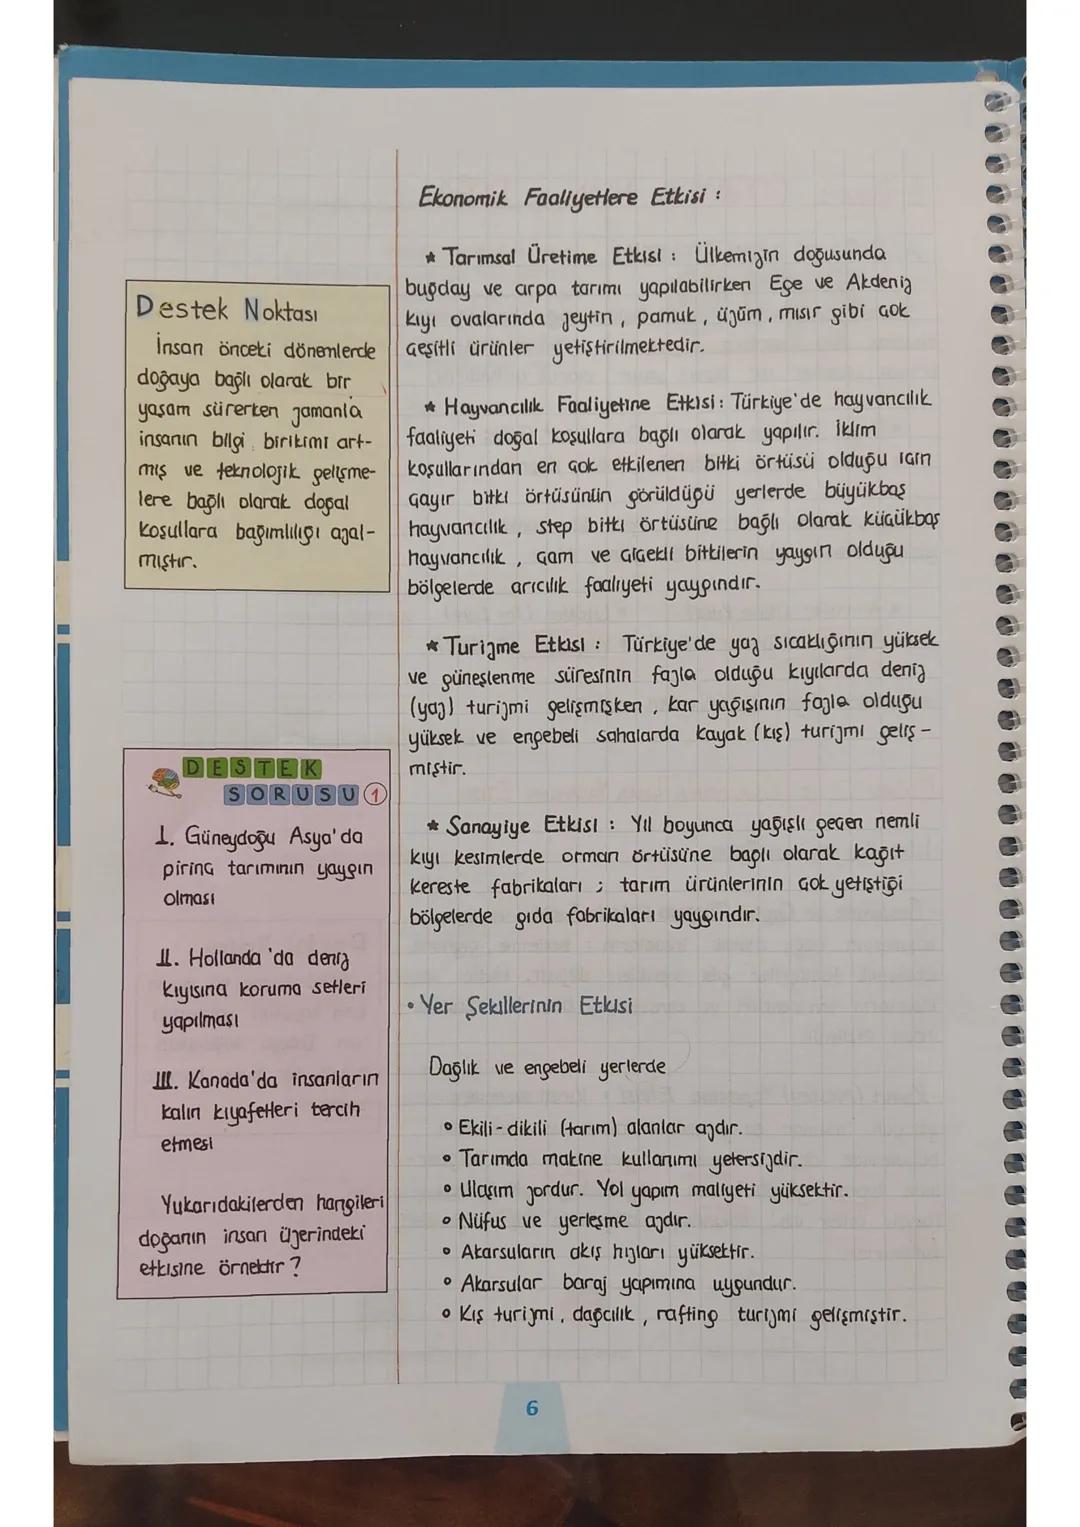 Ekonomik Faaliyetlere Etkisi :
* Tarımsal Üretime Etkisi : Ülkemizin doğusunda
buğday ve arpa tarımı yapılabilirken Ege ve Akdeniz
kıyı ovalarında zeytin, pamuk, üzüm, mısır gibi çok
çeşitli ürünler yetiştirilmektedir.
* Hayvancılık Faaliyetine Etkisi: Türkiye'de hayvancılık
faaliyeti doğal koşullara bağlı olarak yapılır. İklim
koşullarından en çok etkilenen bitki örtüsü olduğu için
çayır bitki örtüsünün görüldüğü yerlerde büyükbaş
hayvancılık, step bitki örtüsüne bağlı olarak küçükbaş
hayvancılık, çam ve çiçekli bitkilerin yaygın olduğu
bölgelerde arıcılık faaliyeti yaygındır.
* Turizme Etkisi : Türkiye'de yaz sıcaklığının yüksek
ve güneşlenme süresinin fazla olduğu kıyılarda deniz
(yaz) turizmi gelişmişken, kar yağışının fazla olduğu
yüksek ve engebeli sahalarda kayak (kış) turizmi geliş-
miştir.
* Sanayiye Etkisi : Yıl boyunca yağışlı geçen nemli
kıyı kesimlerde orman örtüsüne bağlı olarak kağıt
kereste fabrikaları ; tarım ürünlerinin çok yetiştiği
bölgelerde gıda fabrikaları yaygındır.
• Yer Şekillerinin Etkisi
Dağlık ve engebeli yerlerde
• Ekili-dikili (tarım) alanlar azdır.
• Tarımda makine kullanımı yetersizdir.
• Ulaşım zordur. Yol yapım maliyeti yüksektir.
• Nüfus ve yerleşme azdır.
• Akarsuların akış hızları yüksektir.
• Akarsular baraj yapımına uygundur.
• Kış turizmi, dağcılık, rafting turizmi gelişmiştir.
Destek Noktası
İnsan önceki dönemlerde
doğaya bağlı olarak bir
yaşam sürerken zamanla
insanın bilgi birikimi art-
mış ve teknolojik gelişme-
lere bağlı olarak doğal
koşullara bağımlılığı azal-
mıştır.
DESTEK
SORUSU 1
I. Güneydoğu Asya'da
pirinç tarımının yaygın
olması
II. Hollanda'da deniz
kıyısına koruma setleri
yapılması
III. Kanada'da insanların
kalın kıyafetleri tercih
etmesi
Yukarıdakilerden hangileri
doğanın insan üzerindeki
etkisine örnektir?
6